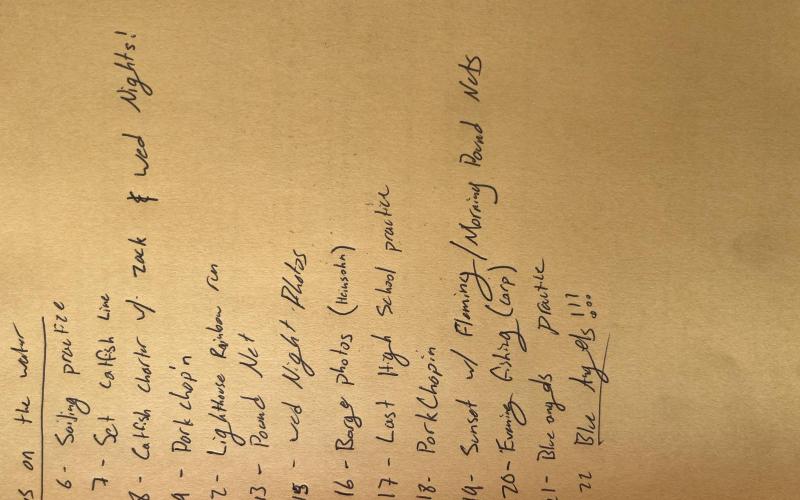 s on the water
6- Sailing practize
7- Set catfish Line
8- Catfish charter w/. zack & wed Nights!
9 - Porkchop'n
2- Lighthouse Rainbow run
13 - Pound Net
15 - wed Night Photos
16 - Barge photos (Heinsohn)
17 - Last High School practice
18- PorkChopin
19- Sunset w/ Fleming/Morning Pound Nets
20- Evening Fishing (Carp)
21- Blue angels practice
22 Blue Angels!!!